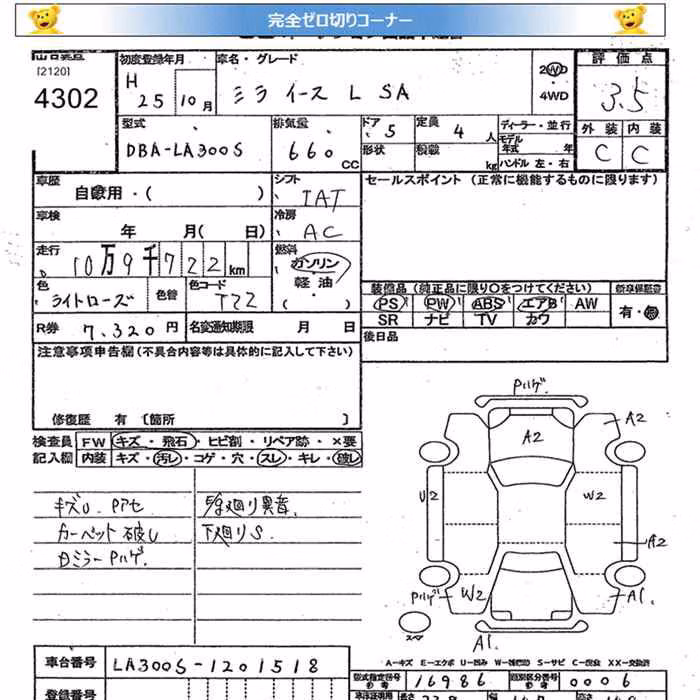 完全ゼロ切りコーナー
[2120]
4302
初度登録年月
H 25年 10月
車名・グレード
ミライース L SA
2WD
4WD
評価点
3.5
外装 内装
C C
型式
DBA-LA300S
排気量
660 CC
ドア 5
形状
定員 4 人
積載 kg
ディーラー・並行
モデル年式 年
ハンドル 左・右
車歴
自家用・( )
シフト
IAT
セールスポイント (正常に機能するものに限ります)
車検
年 月( 日)
冷房
AC
走行
10万9千722km
燃料
ガソリン
軽油
( )
色
ライトローズ
色替
色コード
T22
装備品 (純正品に限り○をつけてください)
PS PW ABS エアB AW
SR ナビ TV カワ
新車保証書
有・無
R券 7,320円
名変通知期限 月 日
後日品
注意事項申告欄(不具合内容等は具体的に記入して下さい)
修復歴 有 〔箇所 〕
検査員記入欄
FW キズ・飛石・ヒビ割・リペア跡・×要
内装 キズ・汚レ・コゲ・穴・スレ・キレ・破レ
キズU. Pアセ
カーペット破レ
Dミラー Pハゲ.
異音.
下廻りS.
Pハゲ.
A2
A2
U2
W2
A2
Pハゲ
W2
A1.
スペア
A1.
A-キズ E-エクボ U-凹み W-補修跡 S-サビ C-腐食 XX-交換済
車台番号
LA300S-1201518
型式指定番号
16986
類別区分番号
0006
登録番号